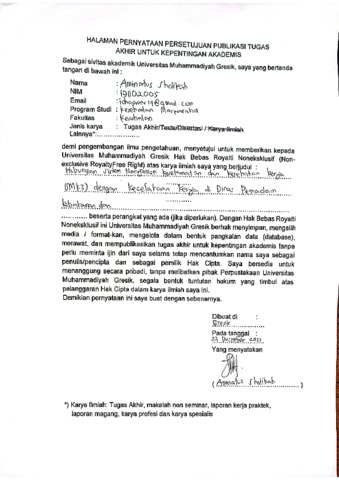 HALAMAN PERNYATAAN PERSETUJUAN PUBLIKASI TUGAS
AKHIR UNTUK KEPENTINGAN AKADEMIS
Sebagai sivitas akademik Universitas Muhammadiyah Gresik, saya yang bertanda
tangan di bawah ini :
Nama : Aminatus Sholikah
NIM : 
Email : 
Program Studi : Kesehatan Masyarakat
Fakultas : Kesehatan
Jenis karya : Tugas Akhir/Tesis/Disertasi / Karya Ilmiah
Lainnya*
demi pengembangan ilmu pengetahuan, menyetujui untuk memberikan kepada
Universitas Muhammadiyah Gresik Hak Bebas Royalti Noneksklusif (Non-
exclusive RoyaltyFree Right) atas karya ilmiah saya yang berjudul :
Hubungan Sistem Manajemen Keselamatan dan Kesehatan Kerja
(SMK3) dengan Kecelakaan Kerja di Dinas Pemadam
Kebakaran dan
beserta perangkat yang ada (jika diperlukan). Dengan Hak Bebas Royalti
Noneksklusif ini Universitas Muhammadiyah Gresik berhak menyimpan, mengalih
media / format-kan, mengelola dalam bentuk pangkalan data (database),
merawat, dan mempublikasikan tugas akhir untuk kepentingan akademis tanpa
perlu meminta ijin dari saya selama tetap mencantumkan nama saya sebagai
penulis/pencipta dan sebagai pemilik Hak Cipta. Saya bersedia untuk
menanggung secara pribadi, tanpa melibatkan pihak Perpustakaan Universitas
Muhammadiyah Gresik, segala bentuk tuntutan hukum yang timbul atas
pelanggaran Hak Cipta dalam karya ilmiah saya ini.
Demikian pernyataan ini saya buat dengan sebenarnya.
Dibuat di :
Gresik
Pada tanggal :
Desember
Yang menyatakan
( Aminatus Sholikah )
*) Karya Ilmiah: Tugas Akhir, makalah non seminar, laporan kerja praktek,
laporan magang, karya profesi dan karya spesialis